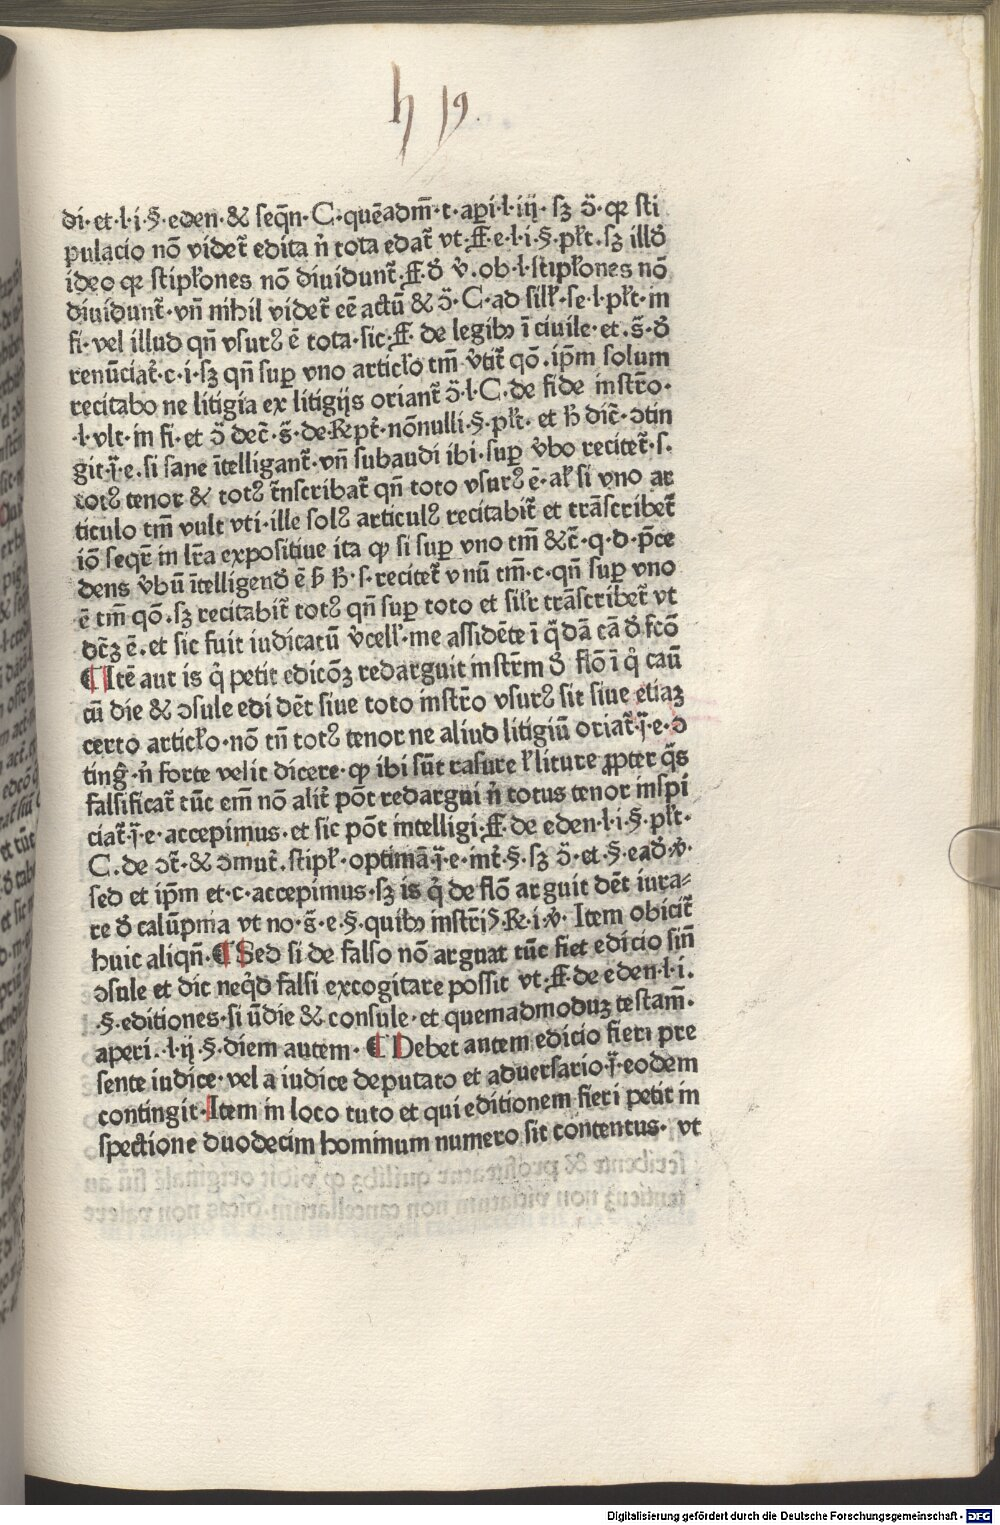 h 19.
di·et·l·i·§·eden·& seq̄n·C·quēadm̄·t·aꝑi·l·iij·sꝫ ɔ̄·qꝛ sti
pulacio nō videt̄ edita n̄ tota edat̄ vt·ff·e·l·i·§·pl̄t·sꝫ illđ
ideo qꝛ stipl̄ones nō diuidunt̄·ff·đ v̄·ob·l·stipl̄ones nō
diuidunt̄·vn̄ nihil videt̄ eē actū & ɔ̄·C·ad sill̄·se·l·pl̄t·in
fi·vel illud qn̄ vsurꝰ ē tota·sic·ff·de legibꝫ ī ciuile·et·s̄·đ
renūciat̄·c·i·sꝫ qn̄ suꝑ vno articl̄o tm̄ v̄tit̄ qō·ip̄m solum
recitabo ne litigia ex litigijs oriant̄ ɔ̄·l·C·de fide instr̄o·
·l·vlt·in fi·et ɔ̄ dec̄·s̄·de·Rept̄·nōnulli·§·pl̄t·et ħ dic̄·ɔtin
git·j̄·e·si sane ītelligant̄·vn̄ subaudi ibi·suꝑ v̄bo recitet̄·s·
totꝰ tenor & totꝰ t̄nscribat̄ qn̄ toto vsurꝰ ē·al̄ si vno ar
ticulo tm̄ vult vti·ille solꝰ articulꝰ recitabit̄ et trāscribet̄
iō seqr̄ in lr̄a expositiue ita ꝙ si suꝑ vno tm̄ &c̄·q·d·p̄ce
dens v̄bū ītelligenđ ē ƀ ħ·s·recitet̄ vnū tm̄·c·qn̄ suꝑ vno
ē tm̄ qō·sꝫ recitabit̄ totꝰ qn̄ suꝑ toto et sil̄r trāscribet̄ vt
dc̄ꝫ ē·et sic fuit iudicatū v̄cell̄·me assidēte ī q̄dā cā đ fcō
¶ Itē aut is q̇ petit edicōꝫ redarguit instr̄m đ flō ī q̇ caū
cū die & ɔsule edi dēt siue toto instr̄o vsurꝰ sit siue etiaꝫ
certo articl̄o·nō tn̄ totꝰ tenor ne aliud litigiū oriat̄·j̄·e·ɔ
tinḡ·n̄ forte velit dicere·ꝙ ibi sūt rasure l̄ liture ꝓpter q̄s
falsificat̄ tūc em̄ nō alit̄ pōt redargui n̄ totus tenor inspi
ciat̄·j̄·e·accepimus·et sic pōt intelligi·ff·de eden·l·i·§·pl̄t·
C·de ɔt̄·& ɔmut̄·stipl̄·optimā j̄·e·int̄·§·sꝫ ɔ̄·et·§·eađ·v̄·
sed et ip̄m et·c·accepimus·sꝫ is q̇ de flō arguit dēt iura⸗
re đ calūpnia vt no·s̄·e·§·quibꝫ instr̄is·R·i·v̄·Item obicit̄
huic aliqn̄·¶ Sed si de falso nō arguat tūc fiet edicio sin̄
ɔsule et dic neq̄d falsi excogitare possit vt·ff·de eden·l·i·
·§·editiones·si ūdie & consule·et quemadmoduꝫ testam̄·
aperi··l·ij·§·diem autem·¶ Debet autem edicio fieri pre
sente iudice·vel a iudice deputato et aduersario·j̄·eodem
contingit·Item in loco tuto et qui editionem fieri petit in
spectione duodecim hominum numero sit contentus· vt
Digitalisierung gefördert durch die Deutsche Forschungsgemeinschaft - DFG